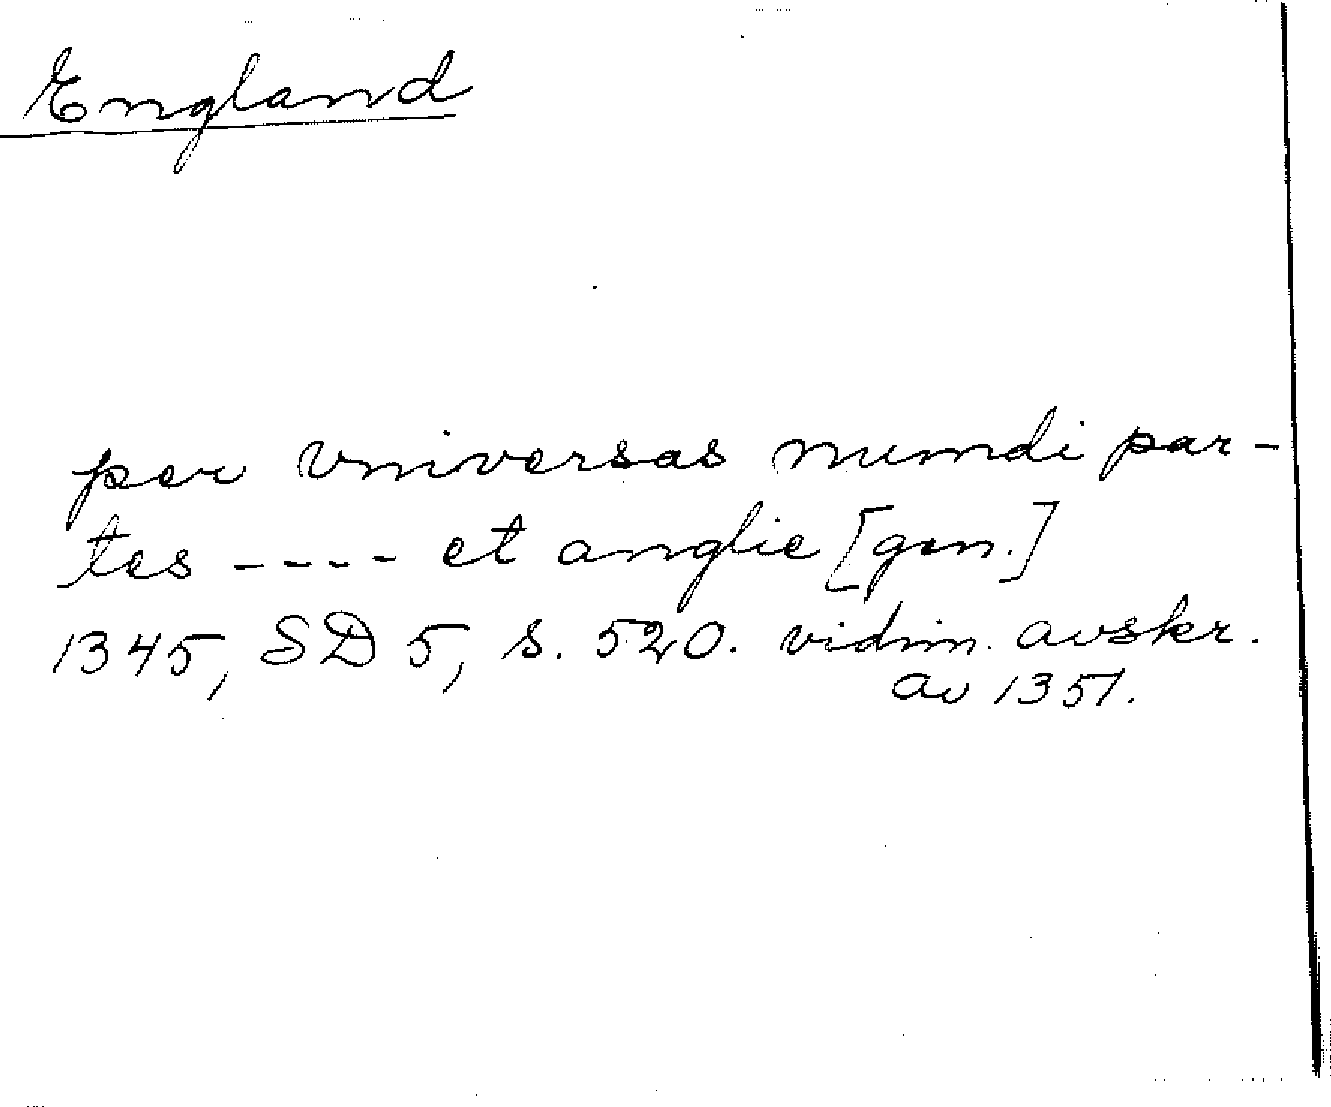 England
per vniversas mundi par-
tes ---- et anglie [gen.]
1345, SD 5, s. 520. vidim. avskr.
av 1351.